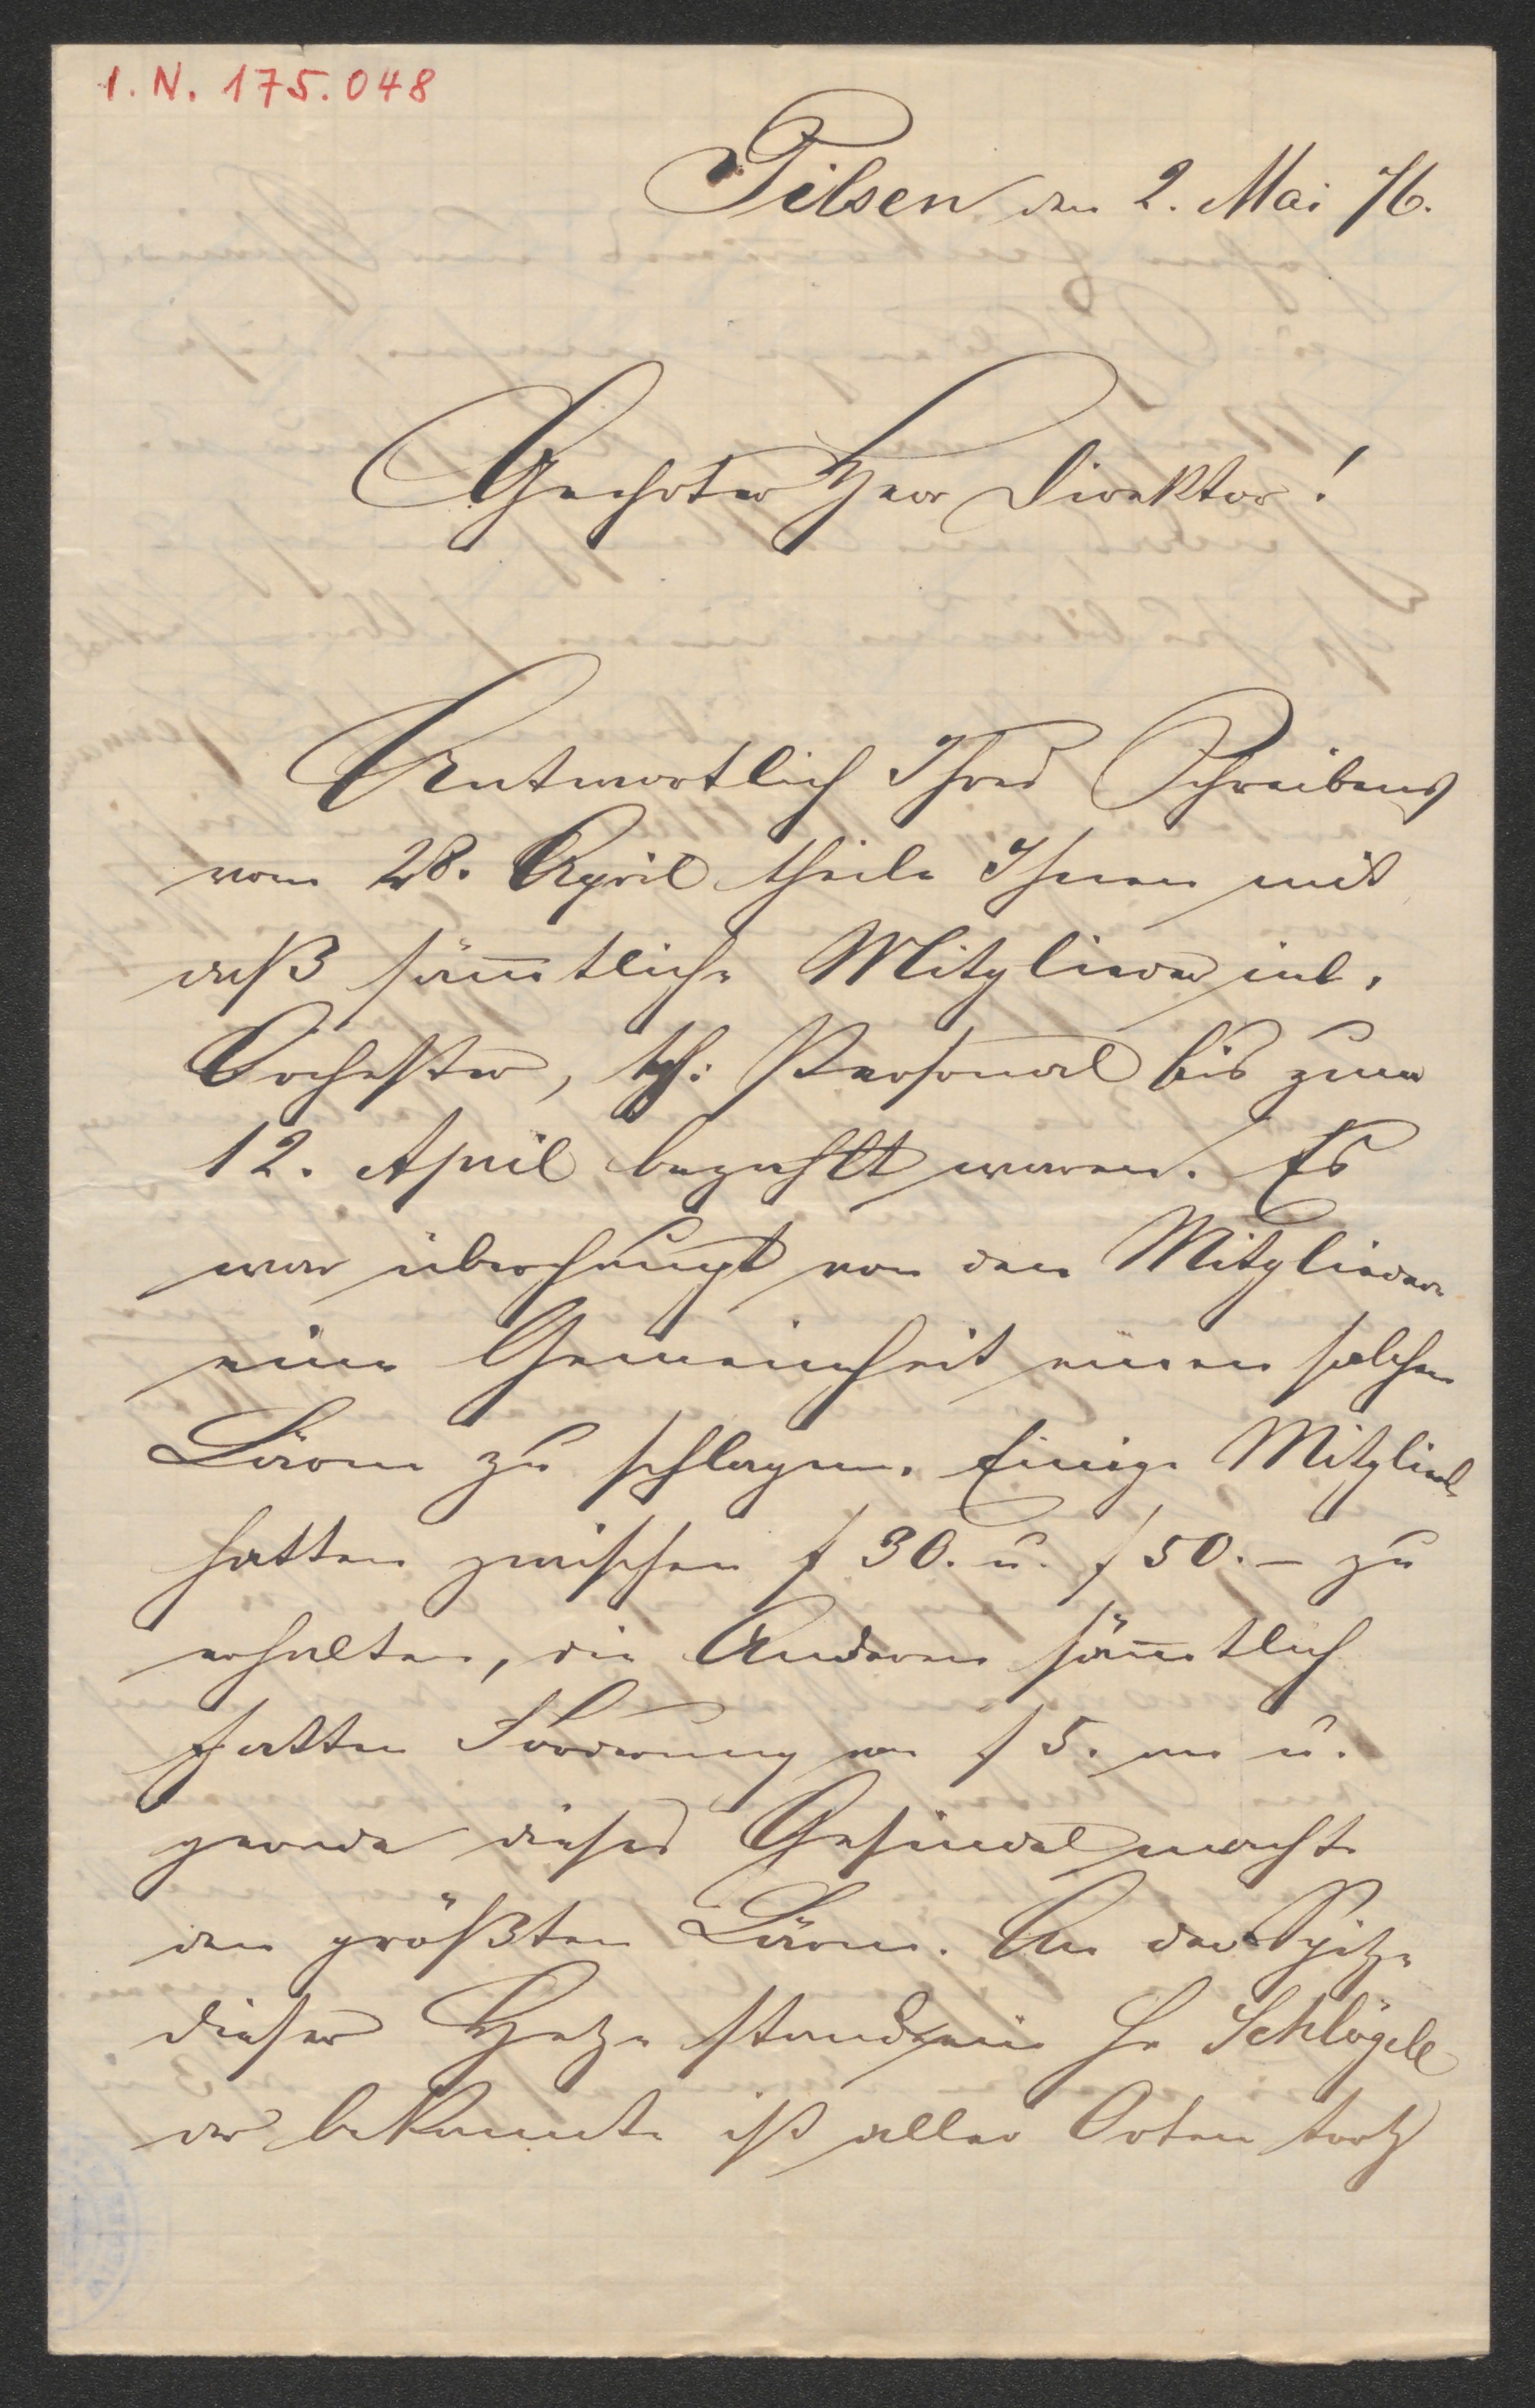 I. N. 175.048
Pilsen den 2. Mai 76.
Geehrter Herr Direktor!
Antwortlich Ihres Schreibens
vom 28. April theile Ihnen mit
daß säm̅tliche Mitglieder incl.
Orchester, tch: Personal bis zum
12. April bezahlt waren. Es
war überhaupt von den Mitgliedern
eine Gemeinheit einen solchen
Lärm zu schlagen. Einige Mitglied
hatten zwischen f 30. u. f 50.– zu
erhalten, die Anderen säm̅tlich
hatten Forderung von f 5. – u.
gerade dieses Gesindel machte
den größten Lärm. An der Spitze
dieser Hetze stand ein Hr Schlögell
der bekannte ist aller Orten trotz